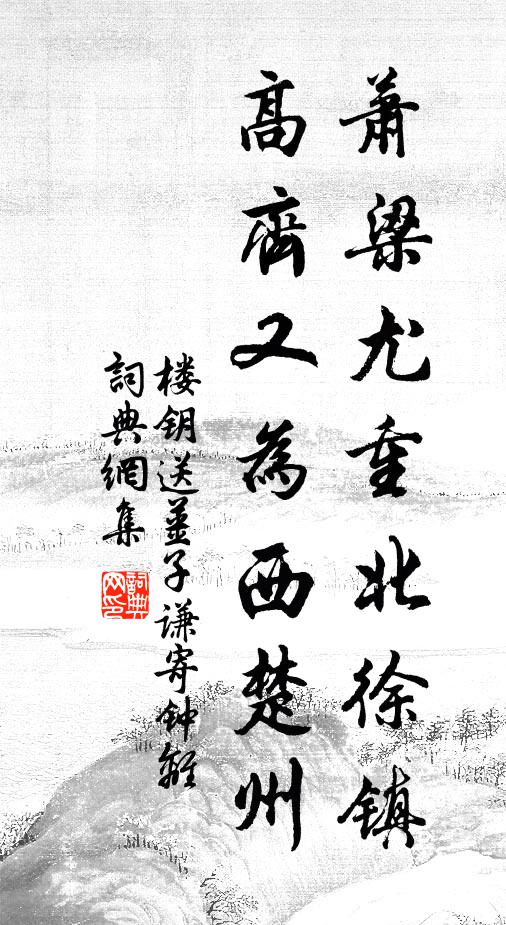 蕭梁尤重北徐镇
高齊又為西楚州
楼钥送姜子谦寄钟離
詞典網集
詞典
网印